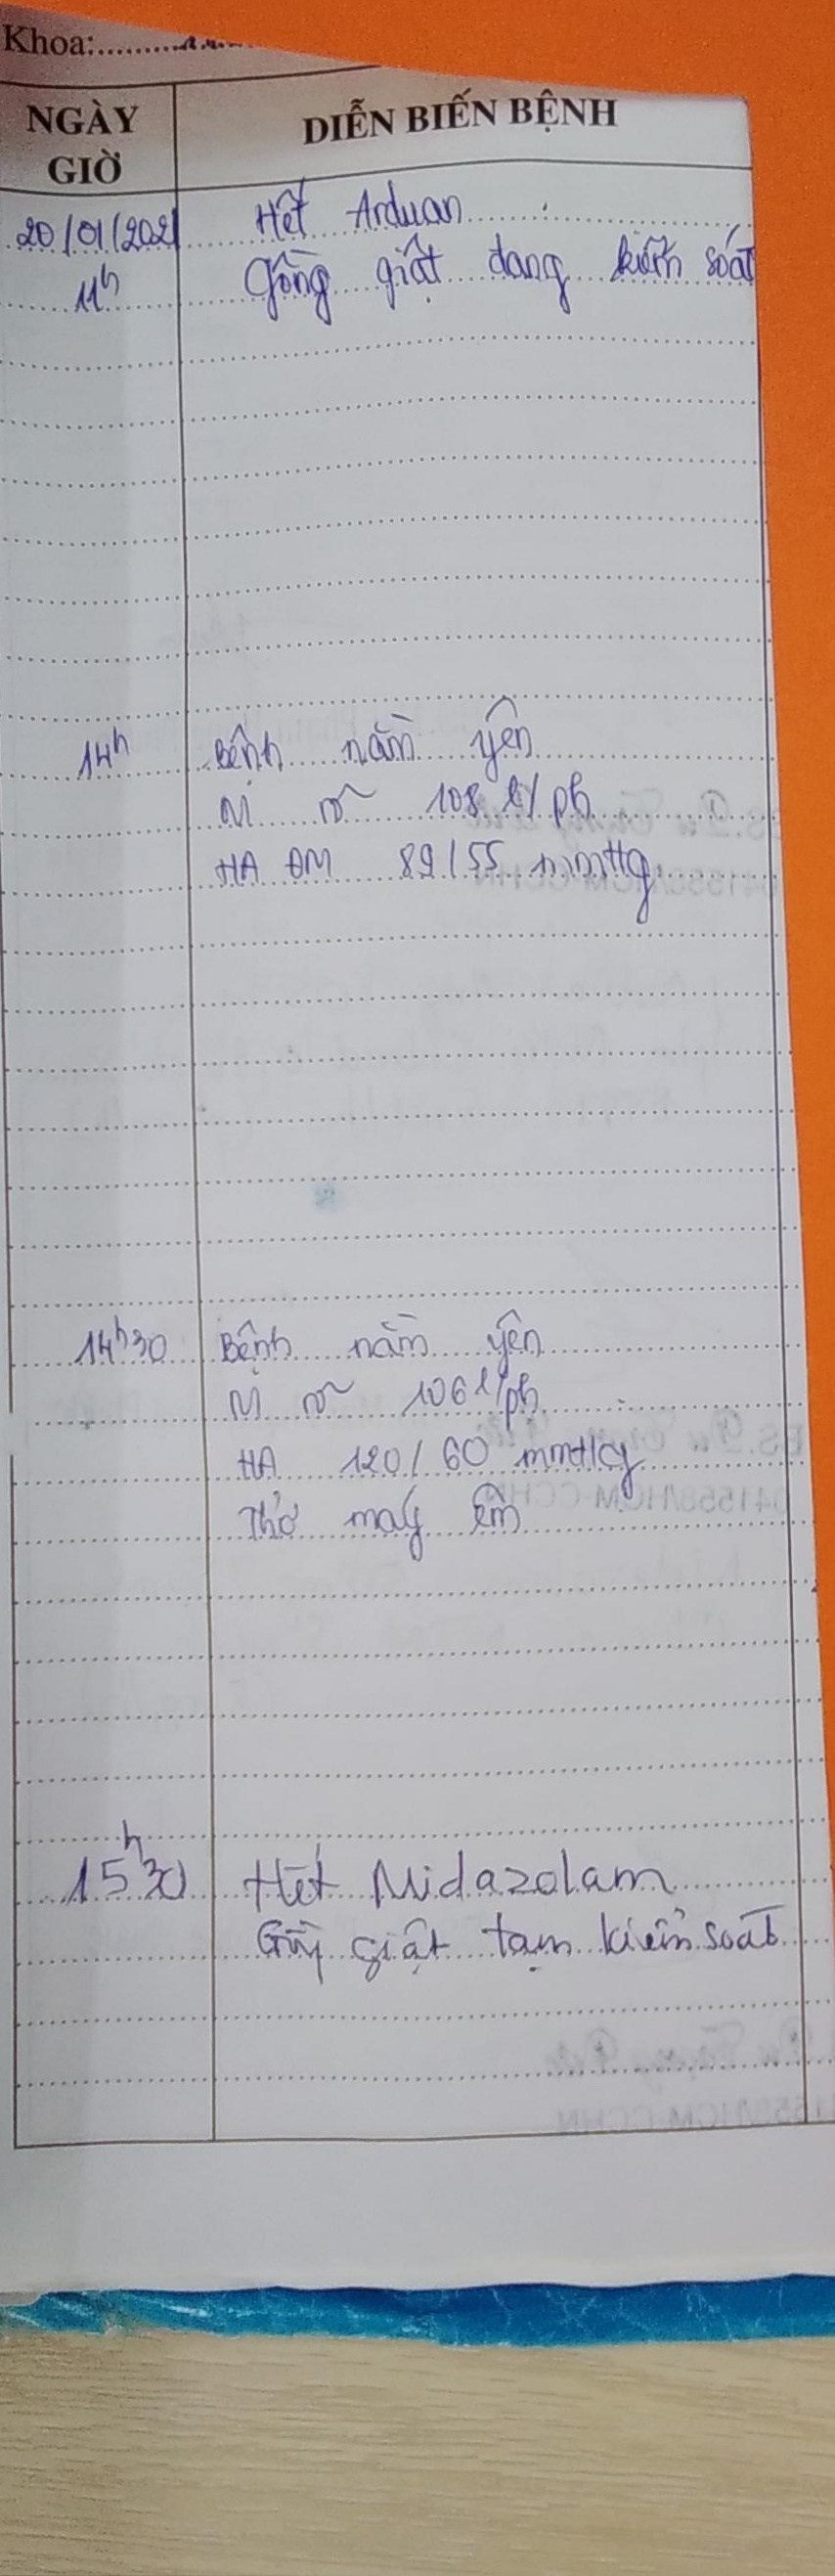 Khoa:
NGÀY GIỜ
DIỄN BIẾN BỆNH
20/01/2021 Hết Arduan
11h Gồng giật đang kiểm soát
14h Bệnh nằm yên
M rõ 108 l/ph
HA ĐM 89/55 mmHg
14h30 Bệnh nằm yên
M rõ 106 l/ph
HA 120/60 mmHg
Thở máy êm
15h30 Hết Midazolam
Gồng giật tạm kiểm soát